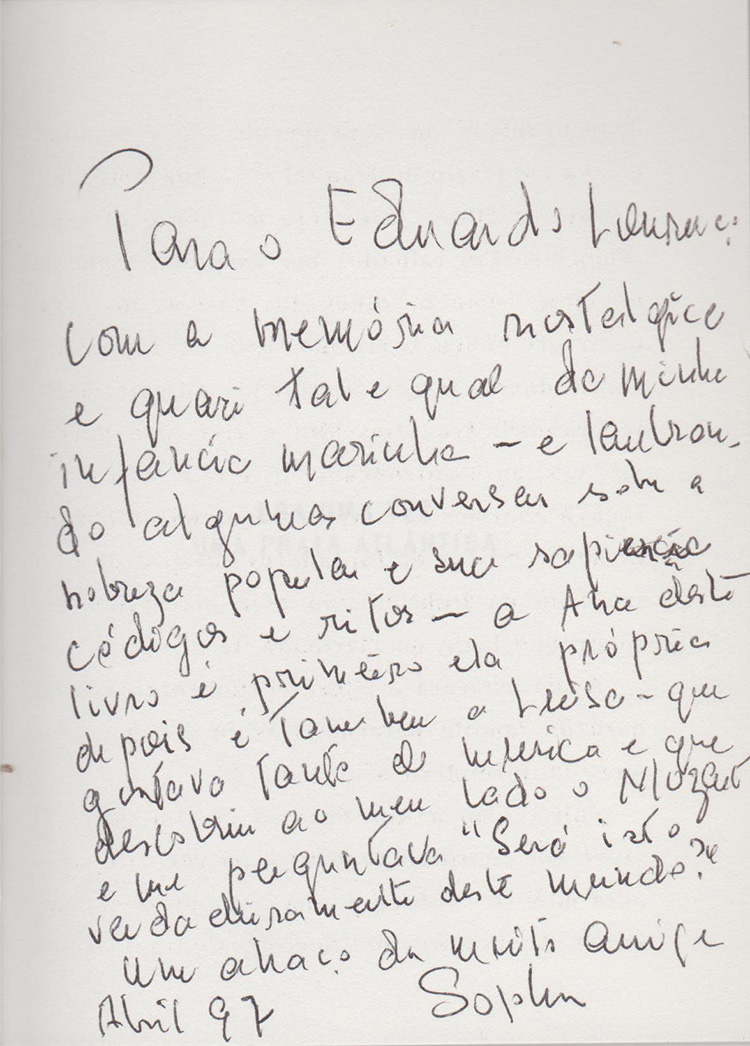 Para o Eduardo Lourenço:
com a memória nostálgica
e quasi tal e qual da minha
infância marinha – e lembran-
do algumas conversas sobre a
nobreza popular e sua sapiência
códigos e ritos – a Ana deste
livro é primeiro ela própria
depois é também a Luísa – que
gostava tanto de música e que
descobriu ao meu lado o Mozart
e me perguntava "Será isto
verdadeiramente deste mundo?"
Um abraço da muito amiga
Sophia
Abril 97
UMA PRAIA ATLÂNTICA